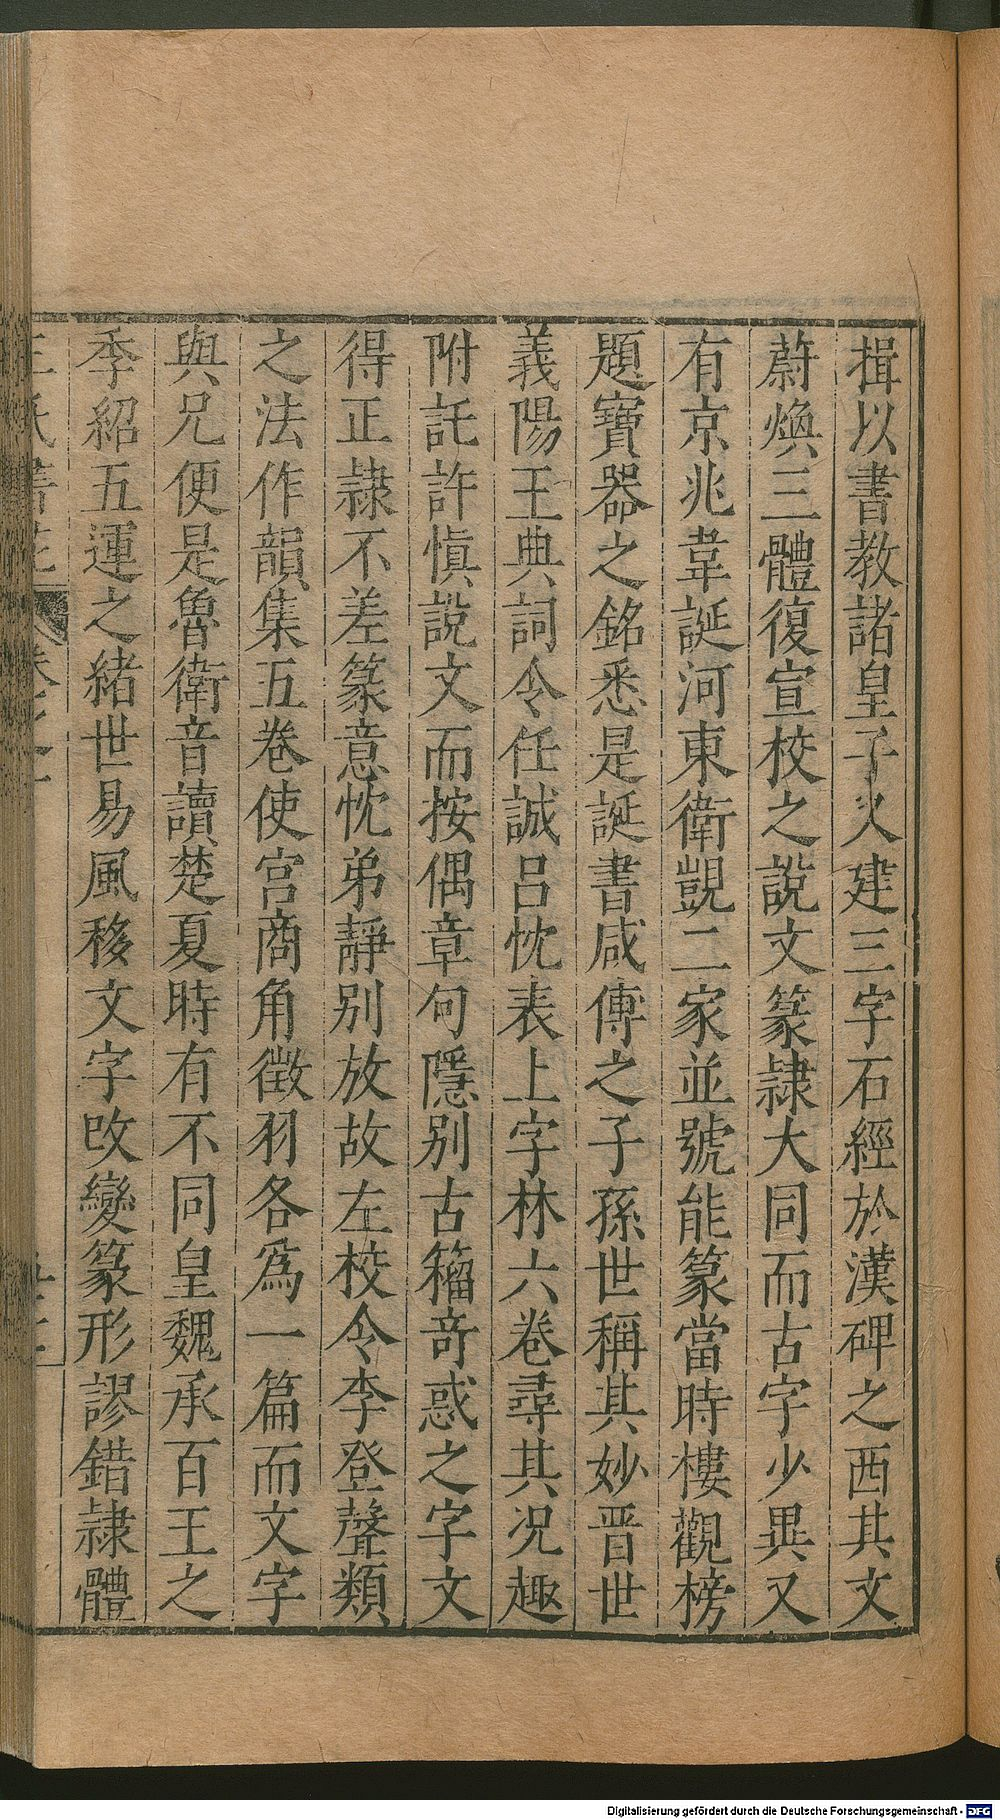 揖以書教諸皇子又建三字石經於漢碑之西其文
蔚煥三體復宣校之說文篆隷大同而古字少異又
有京兆韋誕河東衛覬二家並號能篆當時樓觀榜
題寶器之銘悉是誕書咸傳之子孫世稱其妙晋世
義陽王典詞令任誠吕忱表上字林六卷尋其况趣
附託許愼說文而按偶章句隱别古籀竒惑之字文
得正隷不差篆意忱弟靜别放故左校令李登聲類
之法作韻集五卷使宫商角徵羽各爲一篇而文字
與兄便是魯衛音讀楚夏時有不同皇魏承百王之
季紹五運之緒世易風移文字改變篆形謬錯隷體
王氏書苑 卷之一
Digitalisierung gefördert durch die Deutsche Forschungsgemeinschaft - DFG